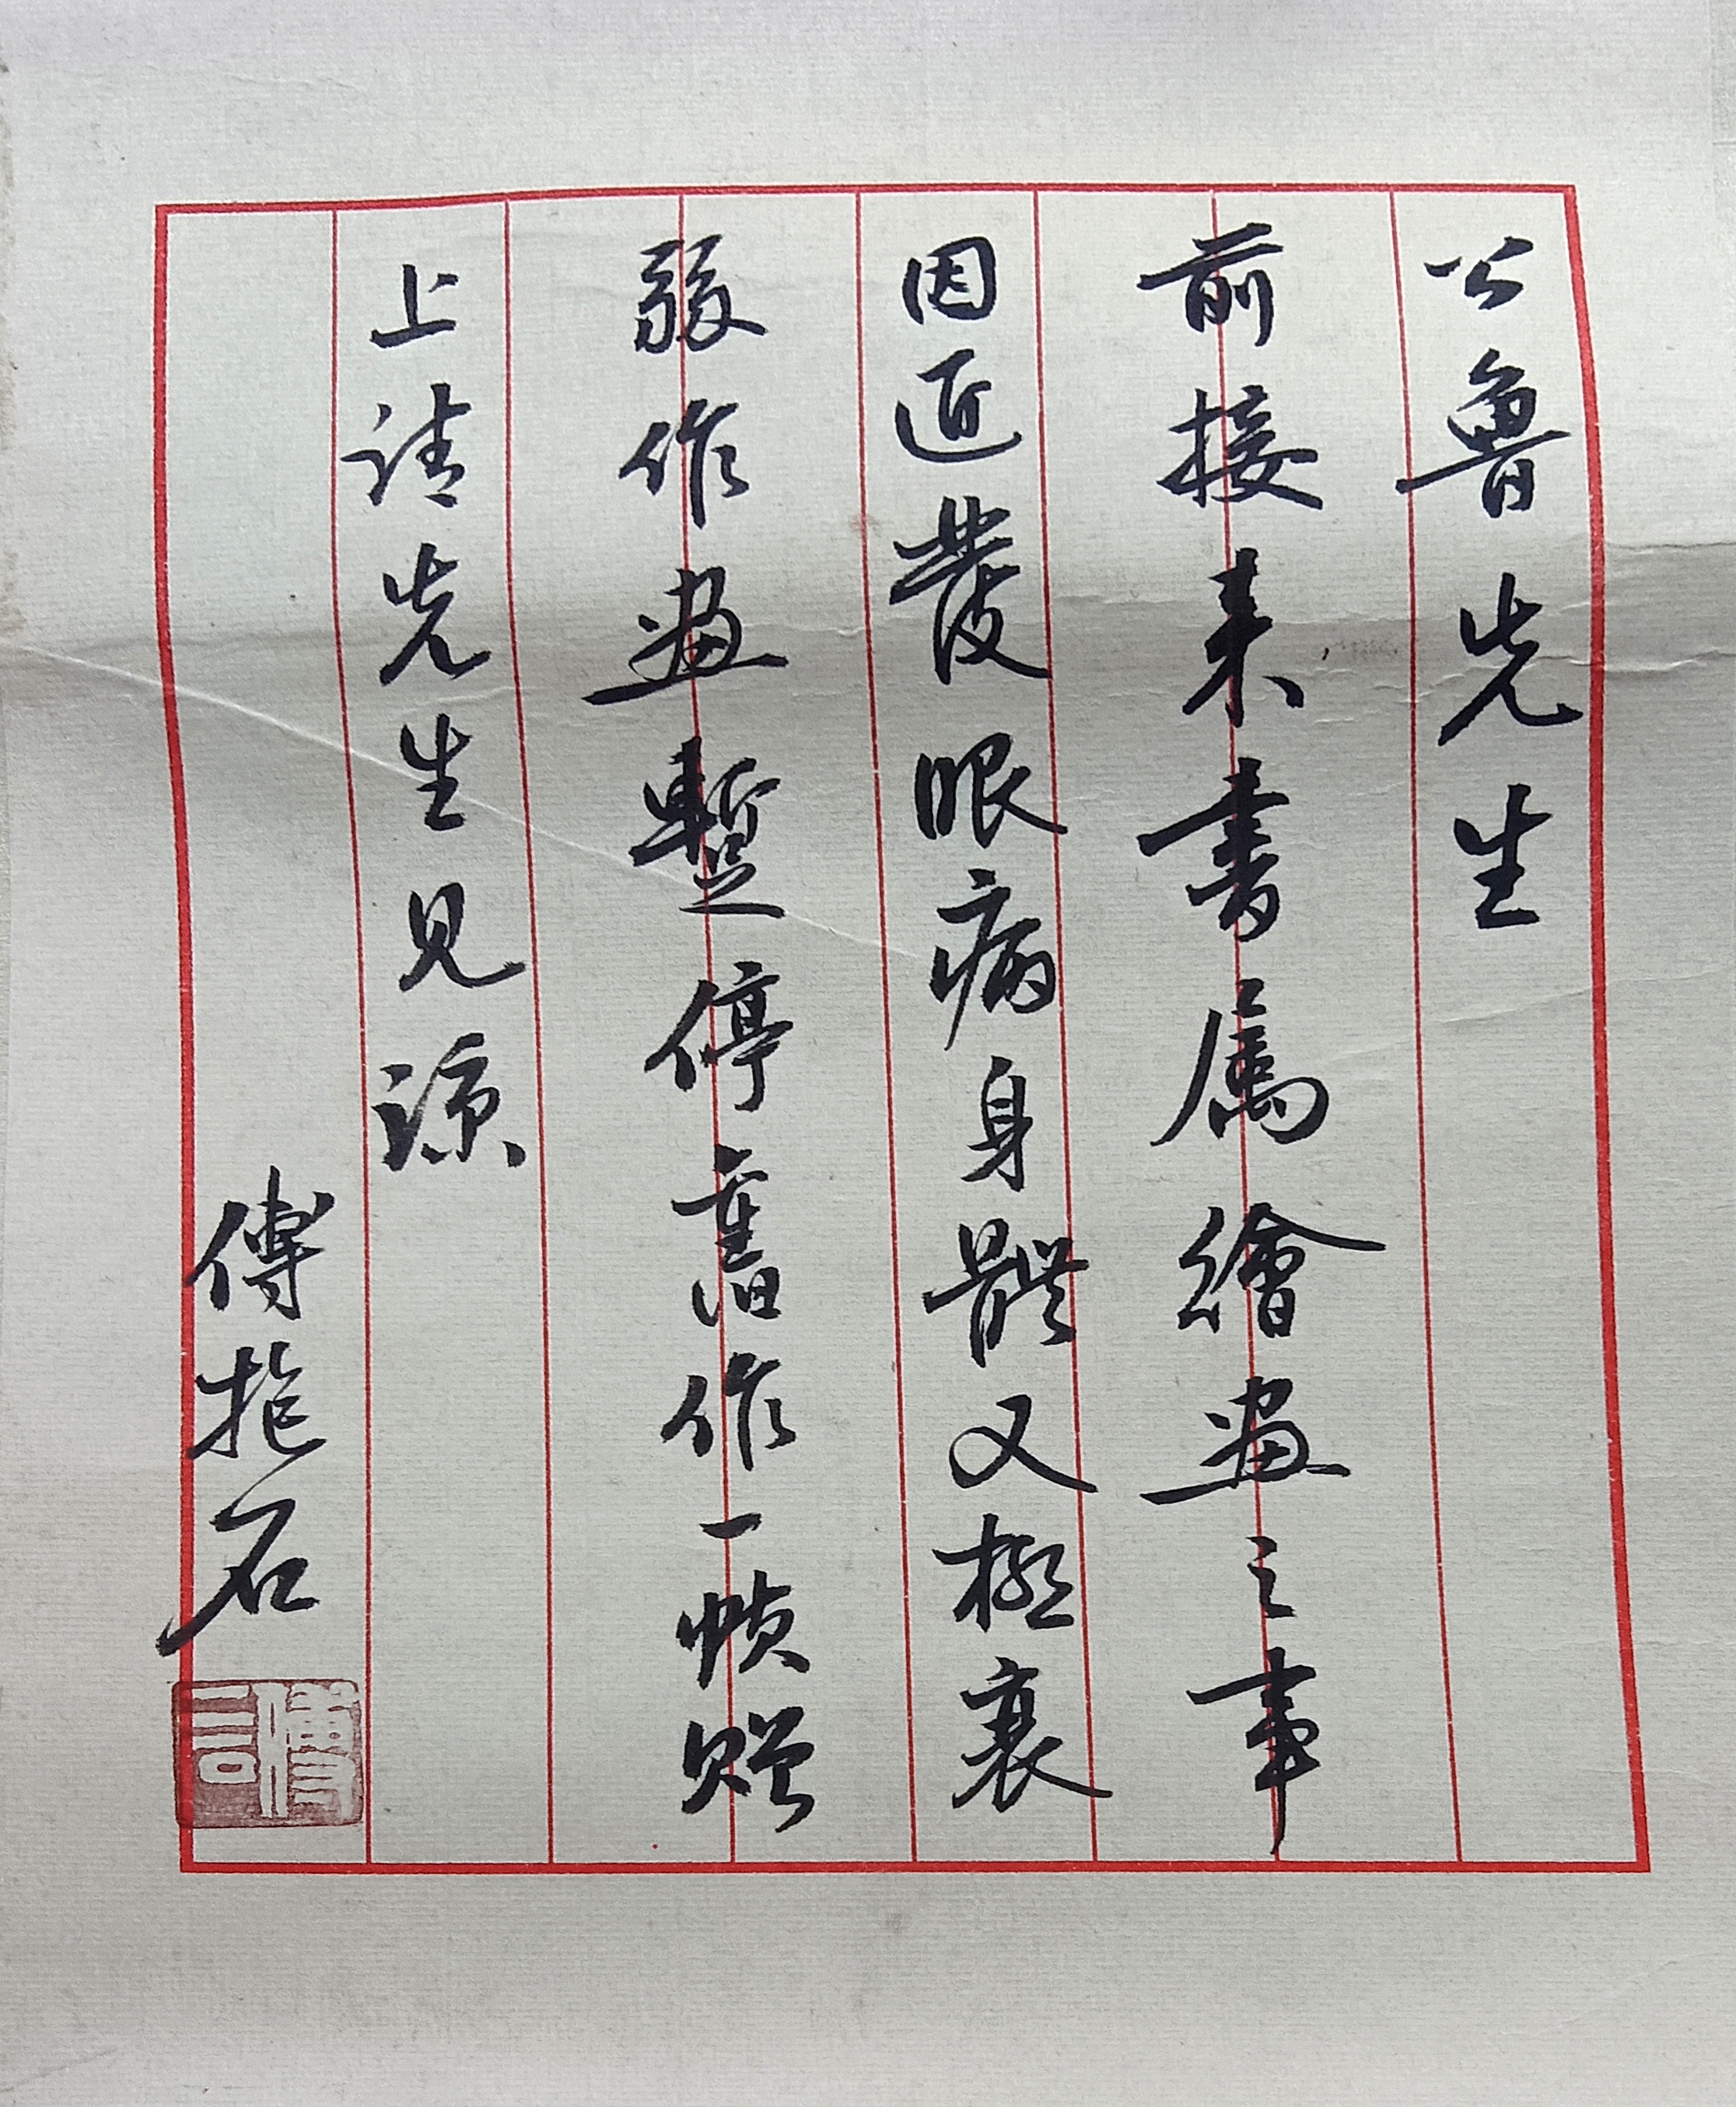 公魯先生
前接来書属繪畫之事
因近發眼病身體又極衰
弱作畫暫停舊作一幀贈
上請先生見諒
傅抱石
傅